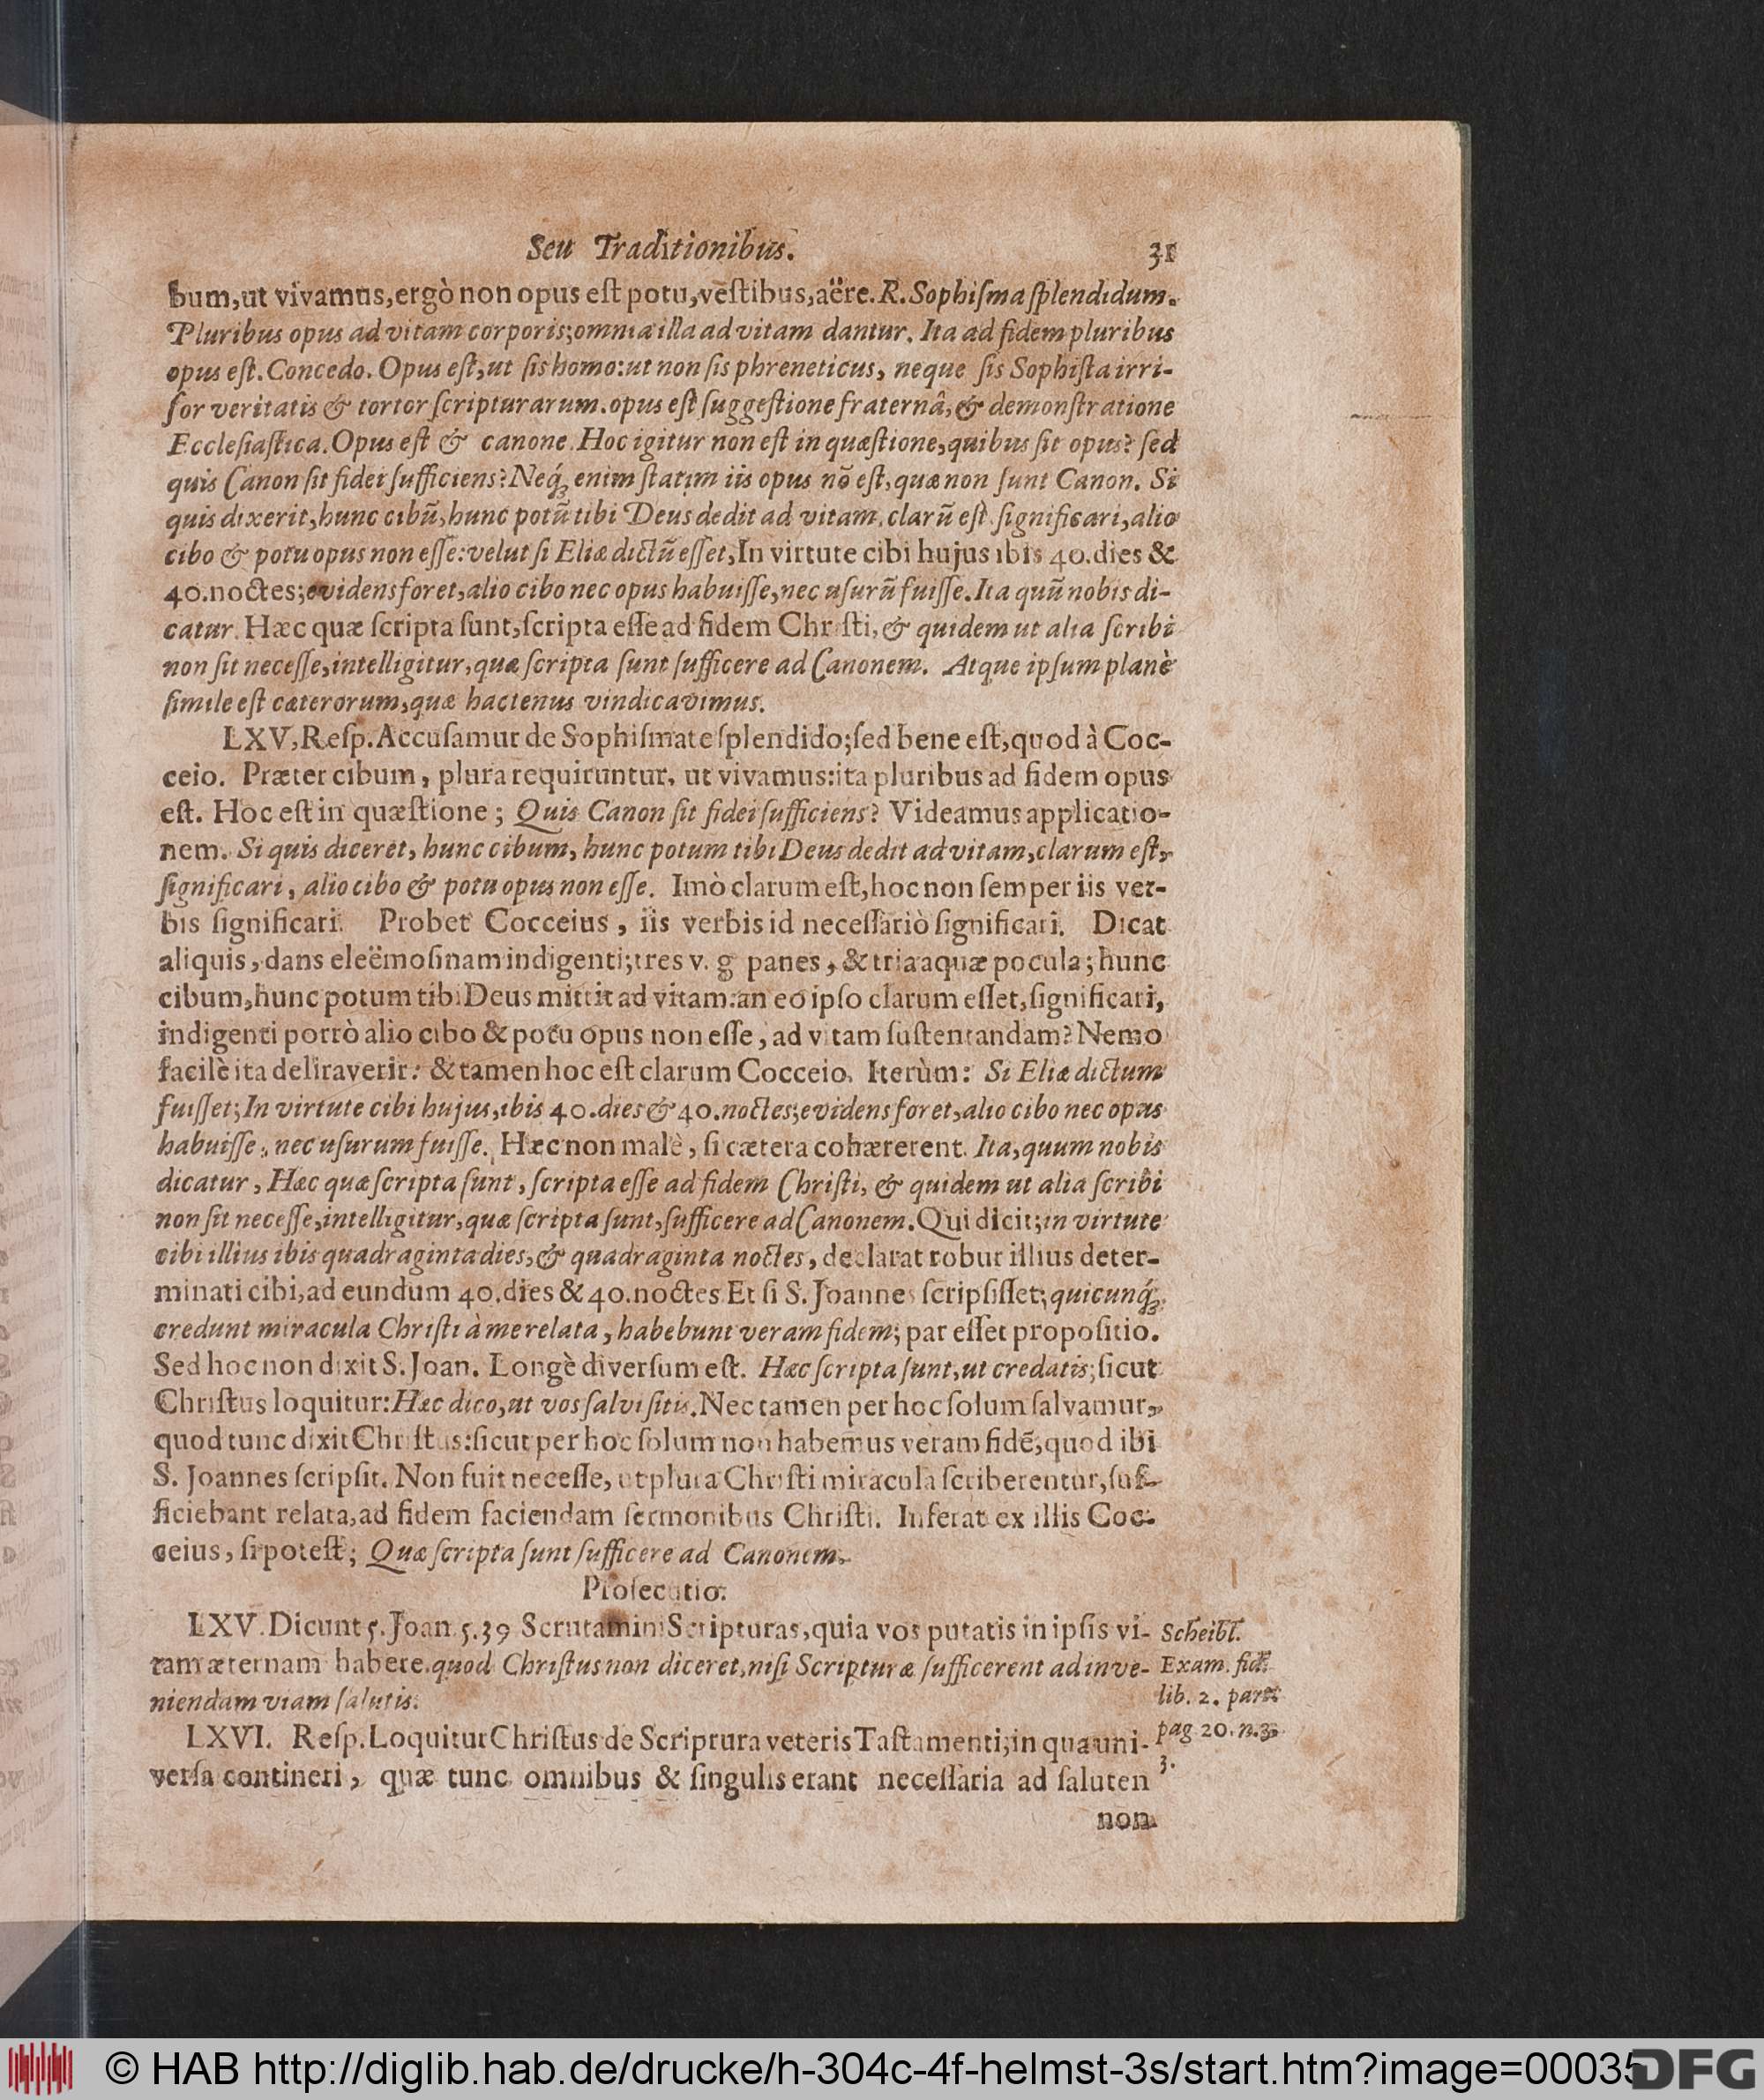 Seu Traditionibus. 31
bum,ut vivamus,ergò non opus eſt potu,veſtibus,aëre. R. Sophiſma ſplendidum.
Pluribus opus ad vitam corporis;omnia illa ad vitam dantur. Ita ad fidem pluribus
opus eſt. Concedo. Opus eſt,ut ſis homo:ut non ſis phreneticus, neque ſis Sophiſta irri-
ſor veritatis & tortor ſcripturarum. opus eſt ſuggeſtione fraternâ, & demonſtratione
Eccleſiaſtica. Opus eſt & canone. Hoc igitur non eſt in quæſtione,quibus ſit opus? ſed
quis Canon ſit fidei ſufficiens? Neq́ꝫ enim ſtatim iis opus nõ eſt,quæ non ſunt Canon. Si
quis dixerit,hunc cibũ,hunc potũ tibi Deus dedit ad vitam, clarũ eſt ſignificari,alio
cibo & potu opus non eſſe:velut ſi Eliæ dictũ eſſet,In virtute cibi hujus ibis 40.dies &
40.noctes;evidens foret,alio cibo nec opus habuiſſe,nec uſurũ fuiſſe. Ita quũ nobis di-
catur. Hæc quæ ſcripta ſunt,ſcripta eſſe ad fidem Chriſti, & quidem ut alia ſcribi
non ſit neceſſe,intelligitur,quæ ſcripta ſunt ſufficere ad Canonem. Atque ipſum planè
ſimile eſt cæterorum,quæ hactenus vindicavimus.
LXV,Reſp. Accuſamur de Sophiſmate ſplendido;ſed bene eſt,quod à Coc-
ceio. Præter cibum, plura requiruntur, ut vivamus:ita pluribus ad fidem opus
eſt. Hoc eſt in quæſtione; Quis Canon ſit fidei ſufficiens? Videamus applicatio-
nem. Si quis diceret, hunc cibum, hunc potum tibi Deus dedit ad vitam,clarum eſt,
ſignificari, alio cibo & potu opus non eſſe. Imò clarum eſt,hoc non ſemper iis ver-
bis ſignificari. Probet Cocceius, iis verbis id neceſſariò ſignificari. Dicat
aliquis, dans eleëmoſinam indigenti;tres v. g panes, & tria aquæ pocula; hunc
cibum,hunc potum tibi Deus mittit ad vitam:an eo ipſo clarum eſſet,ſignificari,
indigenti porrò alio cibo & potu opus non eſſe, ad vitam ſuſtentandam? Nemo
facilè ita deliraverit: & tamen hoc eſt clarum Cocceio. Iterùm: Si Eliæ dictum
fuiſſet; In virtute cibi hujus,ibis 40.dies & 40.noctes;evidens foret,alio cibo nec opus
habuiſſe, nec uſurum fuiſſe. Hæc non malè, ſi cætera cohærerent. Ita,quum nobis
dicatur, Hæc quæ ſcripta ſunt, ſcripta eſſe ad fidem Chriſti, & quidem ut alia ſcribi
non ſit neceſſe,intelligitur,quæ ſcripta ſunt,ſufficere ad Canonem. Qui dicit;in virtute
cibi illius ibis quadraginta dies, & quadraginta noctes, declarat robur illius deter-
minati cibi,ad eundum 40.dies & 40.noctes Et ſi S. Joannes ſcripſiſſet;quicunq́ꝫ
credunt miracula Chriſti à me relata, habebunt veram fidem; par eſſet propoſitio.
Sed hoc non dixit S. Joan. Longè diverſum eſt. Hæc ſcripta ſunt,ut credatis;ſicut
Chriſtus loquitur: Hæc dico,ut vos ſalvi ſitis. Nec tamen per hoc ſolum ſalvamur,
quod tunc dixit Chriſtus:ſicut per hoc ſolum non habemus veram fidẽ,quod ibi
S. Joannes ſcripſit. Non fuit neceſſe, ut plura Chriſti miracula ſcriberentur,ſuf-
ficiebant relata,ad fidem faciendam ſermonibus Chriſti. Inferat ex illis Coc-
ceius, ſi poteſt; Quæ ſcripta ſunt ſufficere ad Canonem.
Proſecutio.
LXV. Dicunt 5. Joan. 5.39 Scrutamini Scripturas,quia vos putatis in ipſis vi-
tam æternam habere. quod Chriſtus non diceret,niſi Scripturæ ſufficerent ad inve-
niendam viam ſalutis.
Scheibl.
Exam. fid.
lib. 2. part.
pag 20. n.3.
3.
LXVI. Reſp. Loquitur Chriſtus de Scriptura veteris Taſtamenti;in qua uni-
verſa contineri, quæ tunc omnibus & ſingulis erant neceſſaria ad ſaluten
non
© HAB http://diglib.hab.de/drucke/h-304c-4f-helmst-3s/start.htm?image=00035
DFG